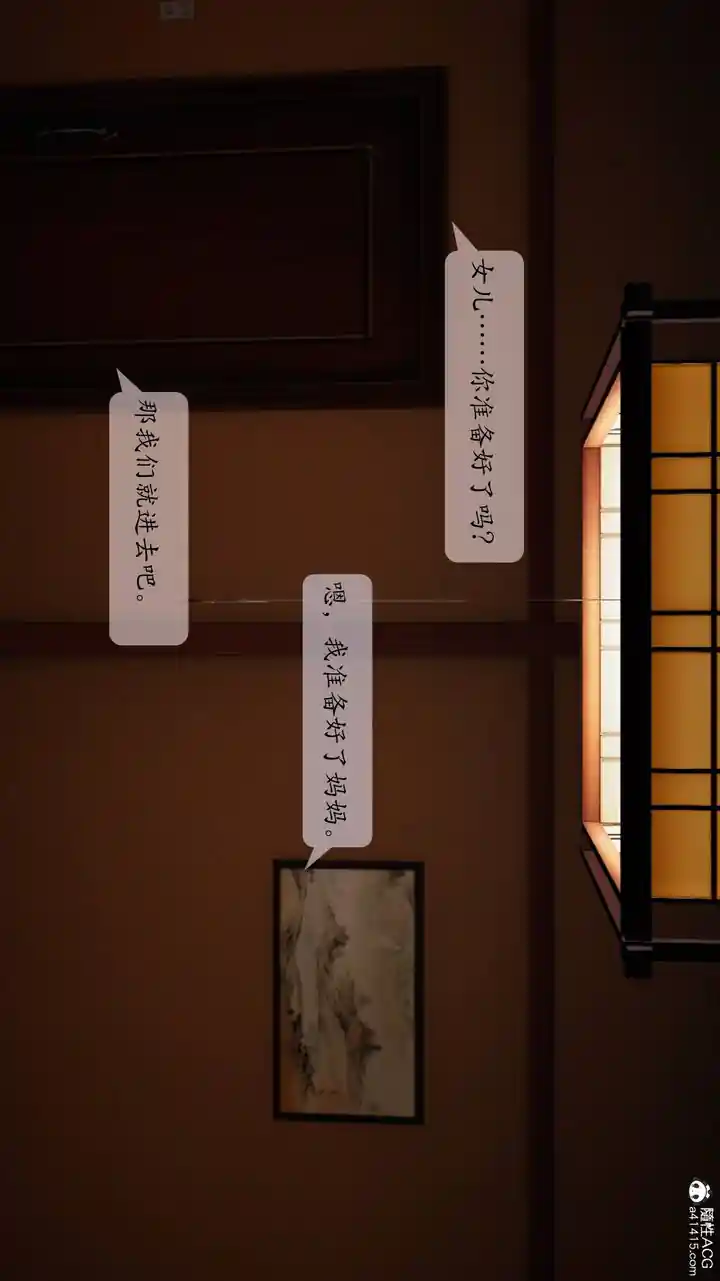 女儿……你准备好了吗？
嗯，我准备好了妈妈。
那我们就进去吧。
随性ACG
a41415.com